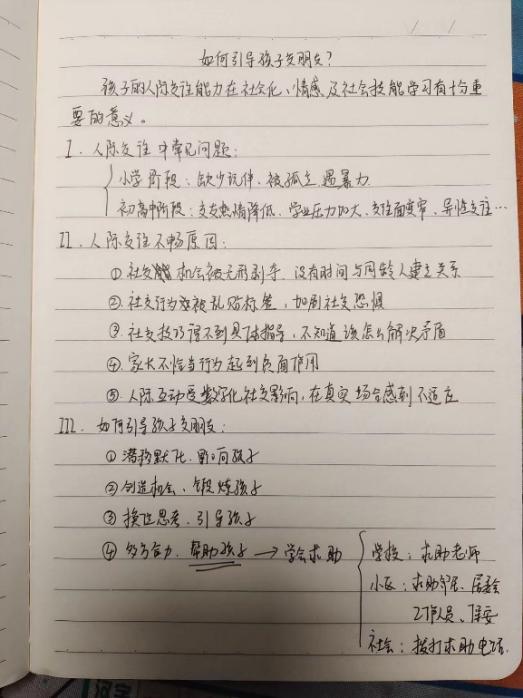 如何引导孩子交朋友?
孩子的人际交往能力在社会化、情感及社会技能学习有十分重
要的意义。
I. 人际交往中常见问题:
小学阶段:缺少玩伴、被孤立、遇暴力
初高中阶段:交友热情降低、学业压力加大、交往面变窄、异性交往…
II. 人际交往不畅原因:
① 社交机会被无形剥夺,没有时间与同龄人建立关系
② 社交行为被乱贴标签,加剧社交恐惧
③ 社交技巧得不到具体指导,不知道该怎么解决矛盾
④ 家长不恰当行为起到负面作用
⑤ 人际互动受数字化社交影响,在真实场合感到不适应
III. 如何引导孩子交朋友:
① 潜移默化、影响孩子
② 创造机会、锻炼孩子
③ 换位思考、引导孩子
④ 多方合力、帮助孩子 → 学会求助
学校:求助老师
小区:求助邻居、居委会
工作人员、保安
社会:拨打求助电话.